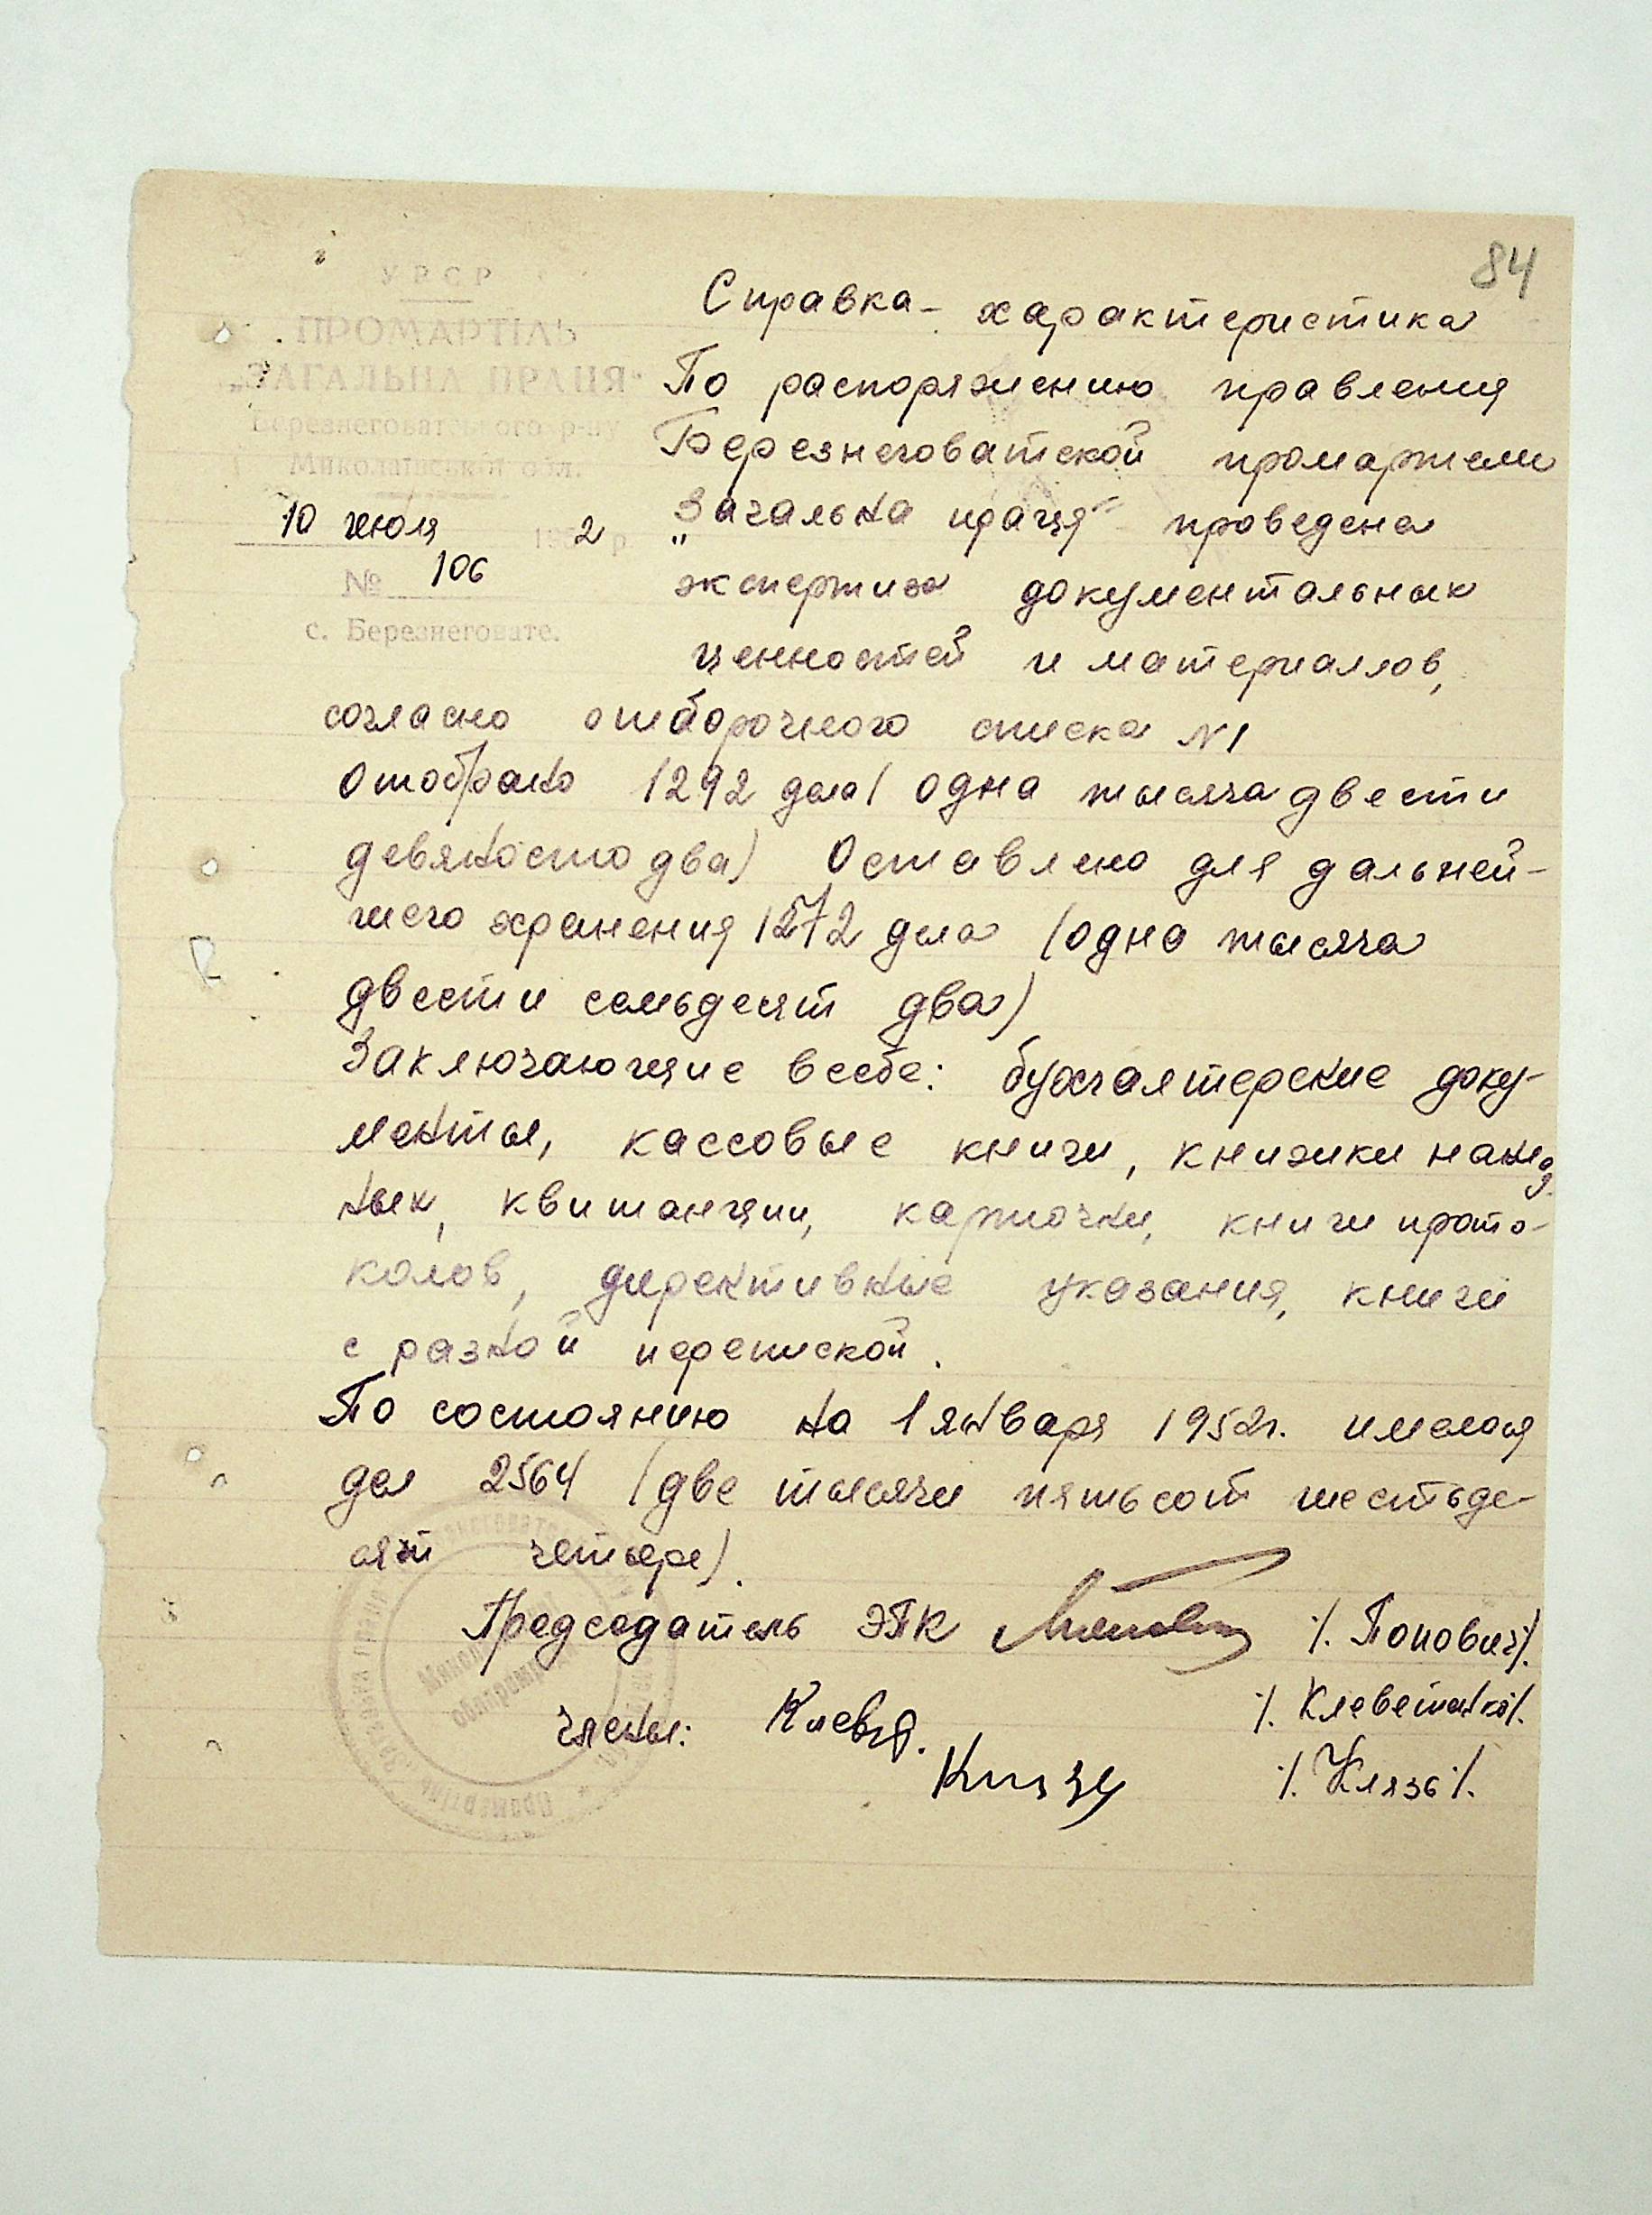 84
УРСР
ПРОМАРТІЛЬ
„ЗАГАЛЬНА ПРАЦЯ“
Березнеговатського р-ну
Миколаївської обл.
10 июля 1952 р.
№ 106
с. Березнеговате.
Справка - характеристика
По распоряжению правления
Березнеговатской промартели
„Загальна праця" проведена
экспертиза документальных
ценностей и материаллов,
согласно отборочного списка N1
Отобрано 1292 дела (одна тысяча двести
девяносто два) Оставлено для дальней-
шего хранения 1272 дела (одна тысяча
двести семьдесят два)
Заключающие в себе: бухгалтерские доку-
менты, кассовые книги, книжки наклад
ных, квитанции, карточки, книги прото-
колов, директивные указания, книги
с разной перепиской.
По состоянию на 1 января 1952г. имелось
дел 2564 (две тысячи пятьсот шестьде-
сят четыре).
Председатель ЭПК /. Попович/.
члены: Клевет. /. Клеветенко/.
Князь /. Князь/.